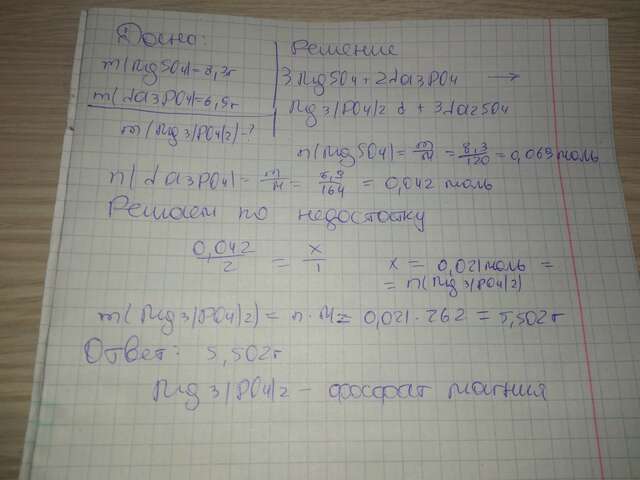 Дано:
m(MgSO4)=8,3г
m(Na3PO4)=6,9г
m(Mg3(PO4)2)-?
Решение
3MgSO4+2Na3PO4 →
Mg3(PO4)2 ↓ + 3Na2SO4
n(MgSO4)= m/M = 8,3/120 = 0,069 моль
n(Na3PO4)= m/M = 6,9/164 = 0,042 моль
Решаем по недостатку
0,042/2 = x/1
x = 0,021 моль =
= n(Mg3(PO4)2)
m(Mg3(PO4)2)= n·M= 0,021·262 = 5,502г
Ответ: 5,502г
Mg3(PO4)2 – фосфат магния